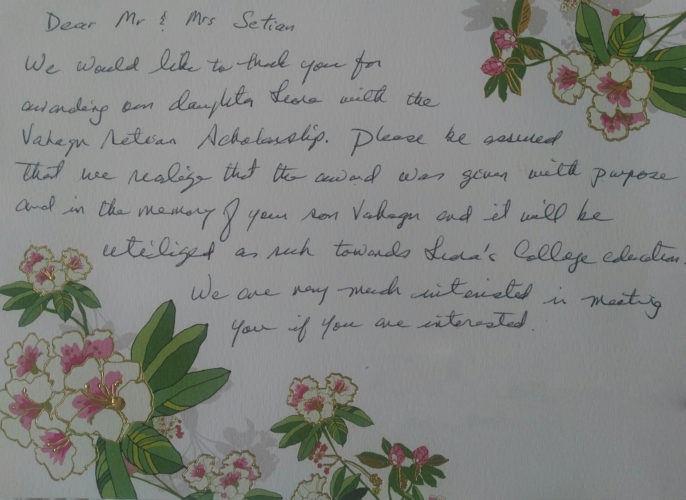 Dear Mr & Mrs Setian
We would like to thank you for
awarding our daughter with the
Vahagn Setian Scholarship. Please be assured
that we realize that the award was given with purpose
and in the memory of your son Vahagn and it will be
utilized as such towards College education.
We are very much interested in meeting
you if you are interested.